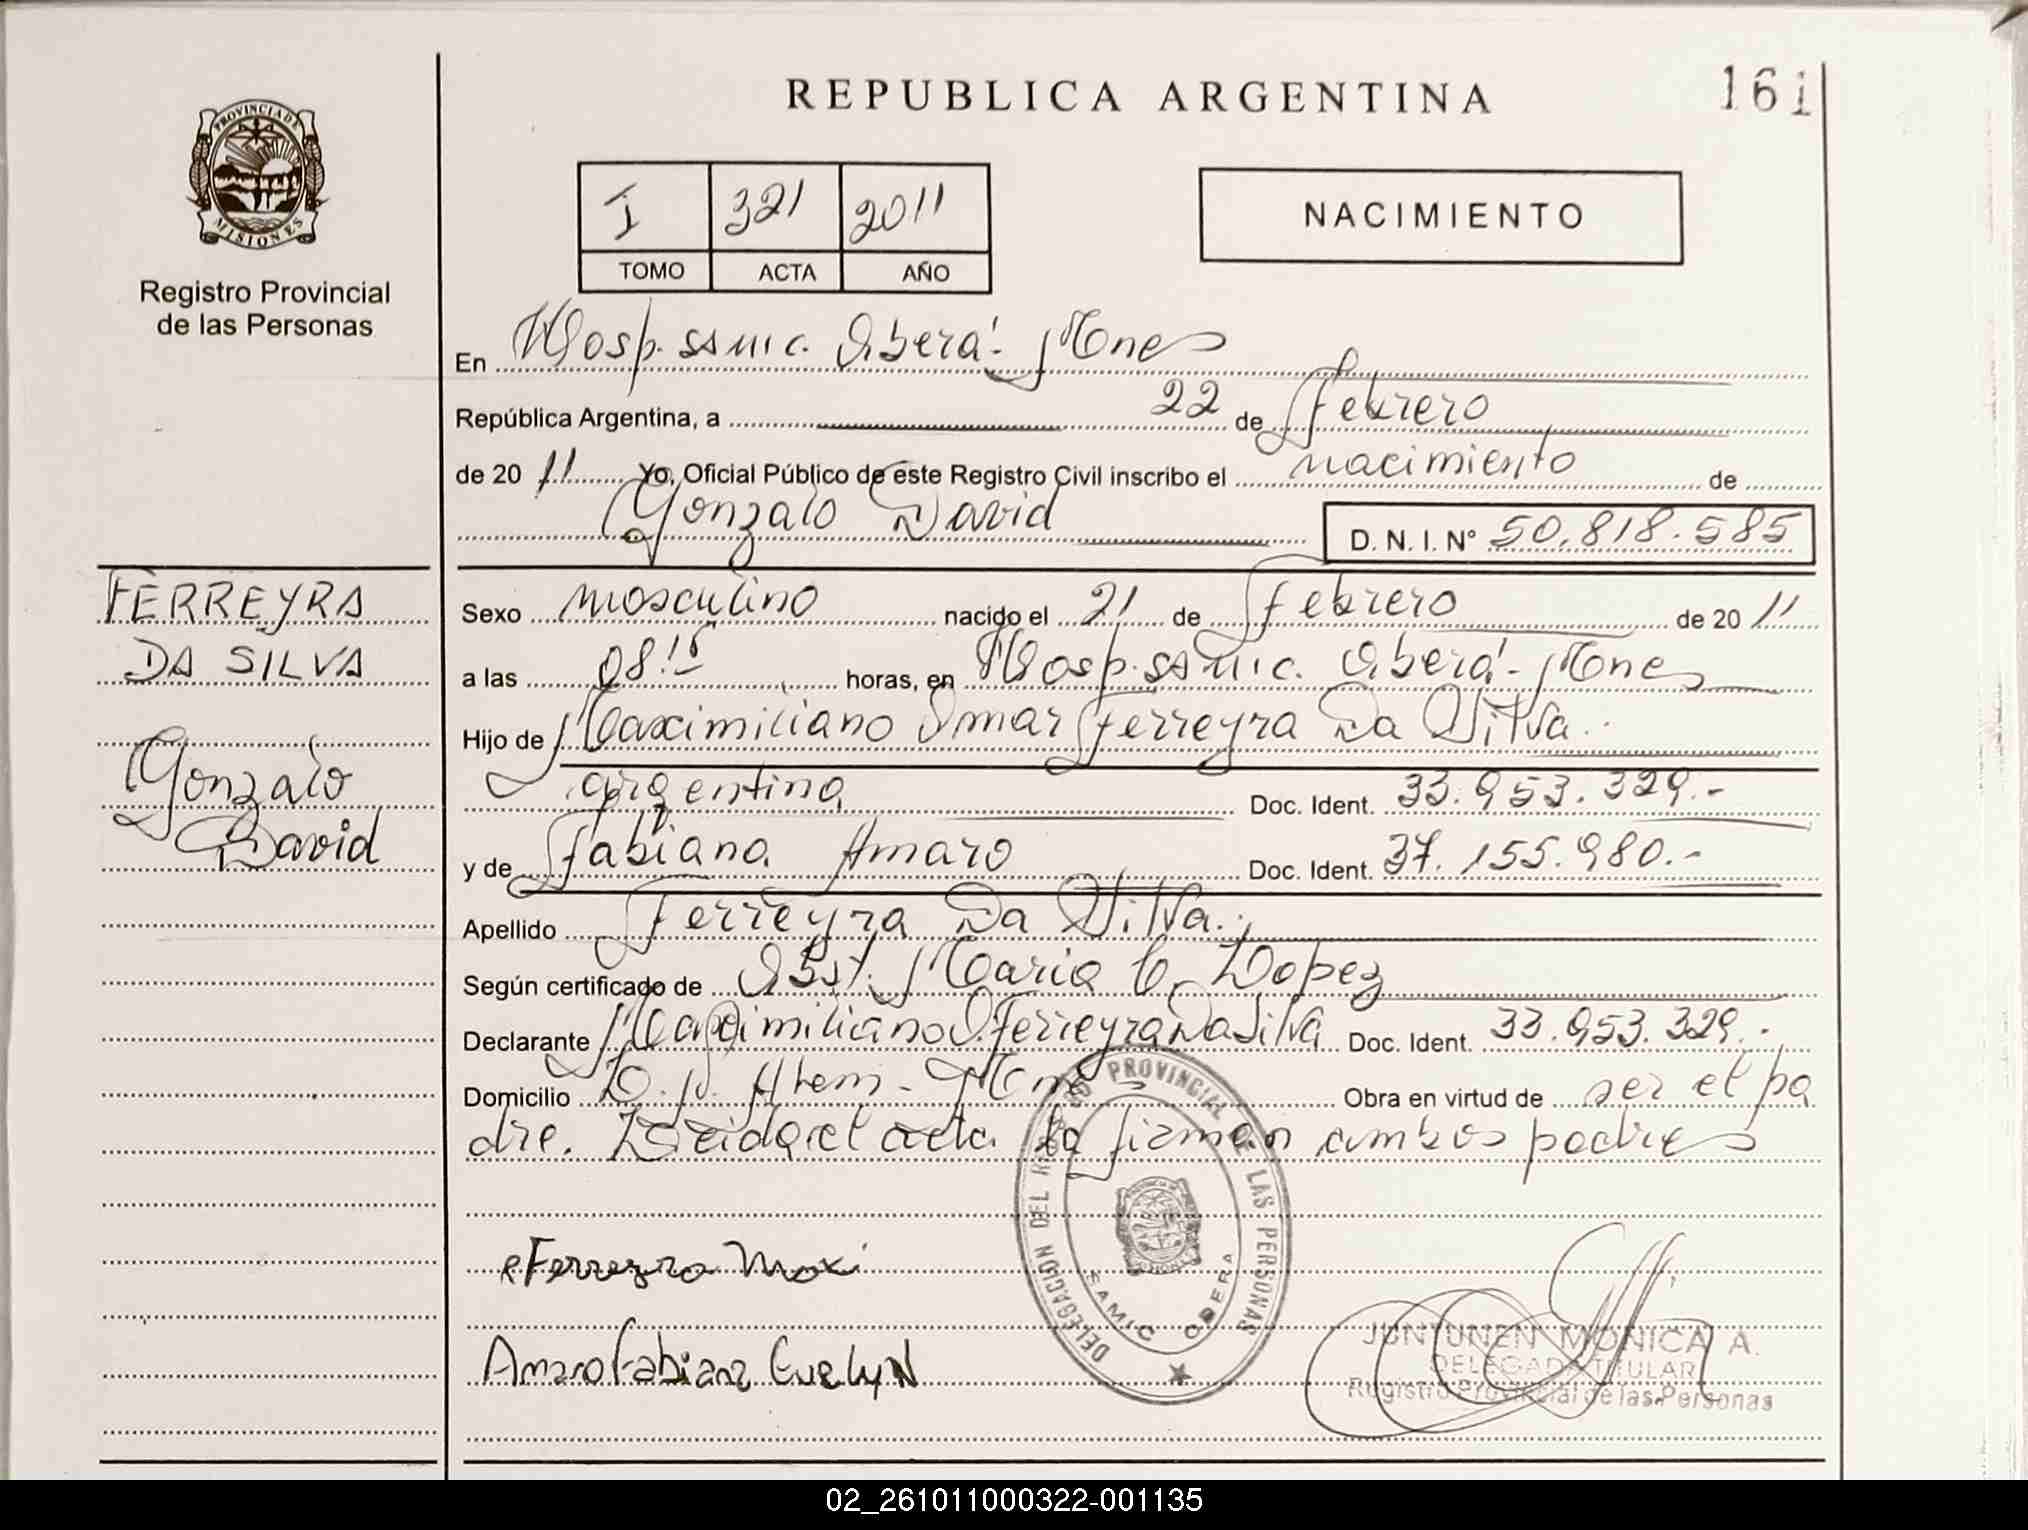 REPUBLICA ARGENTINA
161
PROVINCIA DE
MISIONES
Registro Provincial
de las Personas
I 321 2011
TOMO ACTA AÑO
NACIMIENTO
En Hosp. SAMIC. Oberá - Mnes
República Argentina, a 22 de Febrero
de 20 11 Yo, Oficial Público de este Registro Civil inscribo el nacimiento de
Gonzalo David D. N. I. N° 50.818.585
FERREYRA
DA SILVA
Gonzalo
David
Sexo masculino nacido el 21 de Febrero de 20 11
a las 08:15 horas, en Hosp. SAMIC. Oberá - Mnes
Hijo de Maximiliano Omar Ferreyra Da Silva.
argentina Doc. Ident. 33.953.329.-
y de Fabiana Amaro Doc. Ident. 37.155.980.-
Apellido Ferreyra Da Silva.
Según certificado de Obst. Maria C. Lopez
Declarante Maximiliano O. Ferreyra Da Silva Doc. Ident. 33.953.329.-
Domicilio L. N. Alem - Mnes Obra en virtud de ser el pa
dre. Leida el acta la firman ambos padres
Ferreyra Maxi
Amaro Fabiana Evelyn
DELEGACION DEL REGISTRO PROVINCIAL DE LAS PERSONAS
SAMIC OBERA
JUNTUNEN MONICA A.
DELEGADA TITULAR
Registro Provincial de las Personas
02_261011000322-001135